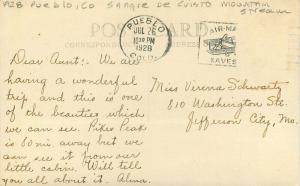 1928 PUEBLO, CO SANGRE DE CRISTO MOUNTAIN STREAM
POST CARD
CORRESPONDENCE
PUEBLO
JUL 26
PM
1928
COLO.
AIR-MA
SAVES
Dear Aunt:- We are
having a wonderful
trip and this is one
of the beauties which
we can see. Pikes Peak
is 60 mi. away but we
can see it from our
little cabin. Will tell
you all about it. Alma.
Miss Verena Schwartz
810 Washington St.
Jefferson City, Mo.